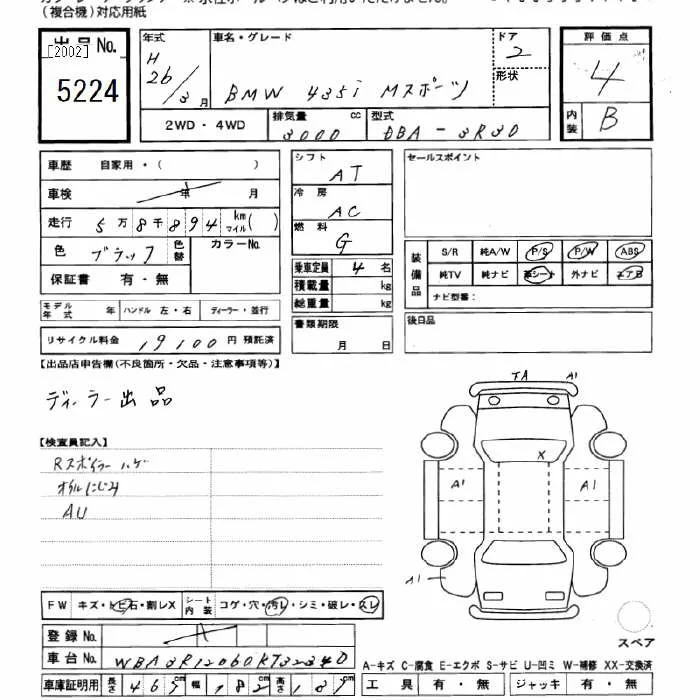 (複合機)対応用紙
出品No.
[2002]
5224
年式
H
26/3月
車名・グレード
BMW 435i Mスポーツ
ドア
2
形状
評価点
4
内装
B
2WD・4WD
排気量
3000
cc
型式
DBA-3R30
車歴 自家用・( )
車検 年 月
走行 5万8千894 km マイル( )
色 ブラック
色替
カラーNo.
保証書 有・無
モデル年式 年 ハンドル 左・右 ディーラー・並行
リサイクル料金 19100円 預託済
シフト
AT
冷房
AC
燃料
G
乗車定員 4名
積載量 kg
総重量 kg
書類期限
月 日
セールスポイント
装備品
S/R 純A/W P/S P/W ABS
純TV 純ナビ 革シート 外ナビ エアB
ナビ型番:
後日品
【出品店申告欄(不良箇所・欠品・注意事項等)】
ディーラー出品
【検査員記入】
Rスポイラーハゲ
オイルにじみ
AU
A1
X
A1
A1
A1
FW キズ・トビ石・割レX シート内装 コゲ・穴・汚レ・シミ・破レ・スレ
登録No.
車台No.
車庫証明用 長さ cm 幅 cm 高さ cm
スペア
A-キズ C-腐食 E-エクボ S-サビ U-凹ミ W-補修 XX-交換済
工具 有・無 ジャッキ 有・無